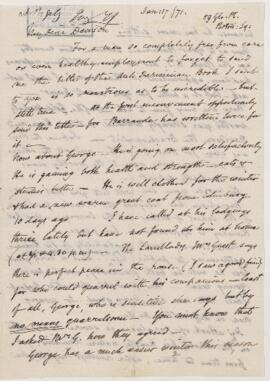 Jan 15th/71.
58 Glo. St.
My dear Dawson
For a man so completely free from care
or even healthy employment to forget to send
you the title of that dull Silurian Book I sent
to you is so monstrous as to be incredible – but
still true. At the first inconvenient opportunity
send this title – for Barrande has written twice for
it –
Now about George – He is going on most satisfactorily
He is gaining both health and strength – eats &
studies better – He is well clothed for the winter
& had a new warm great coat from Edinburg
10 days ago – I have called at his lodgings
thrice lately but have not found him at home
(at 4 or 4.30 p.m.) – The Landlady Mrs Guest says
there is perfect peace in the house
for who could quarrel with his companions – least
of all, George, who is sensitive she says but by
no means quarrelsome – You must know that
I asked Mrs G. how they agreed –
George has a much easier winter this season